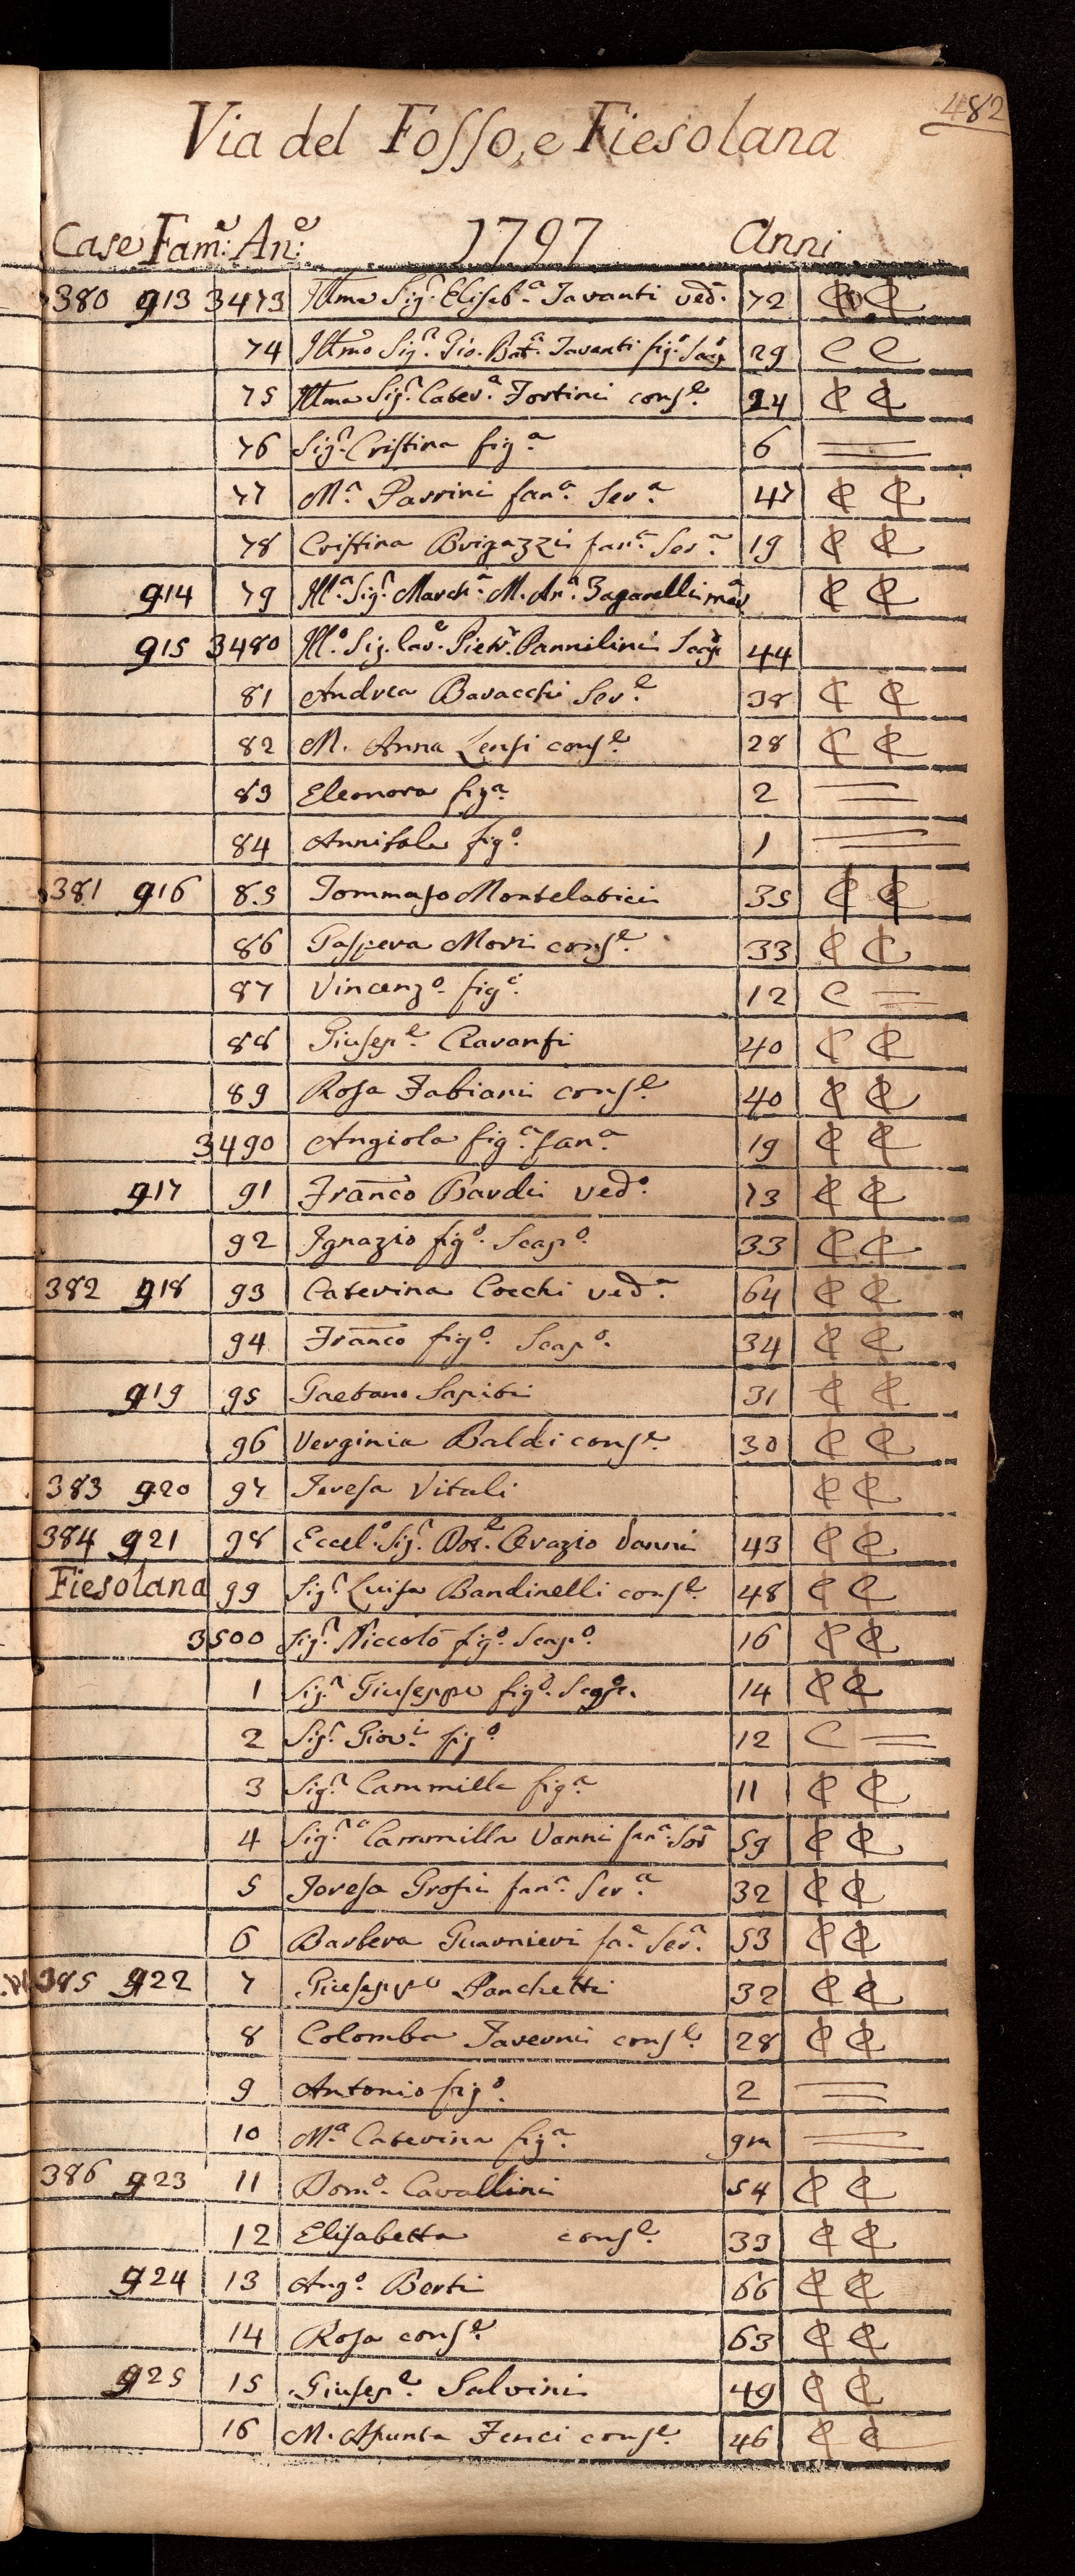 482
Via del Fosso, e Fiesolana
Case Fam:e An:e 1797 Anni
380 913 3473 Illma Sig.ra Elisab.a Tavanti ved.a 72 C C
74 Illmo Sig.r Gio. Bat.a Tavanti fig.o Scap. 29 C C
75 Illma Sig.ra Cater.a Fortini cons.e 24 C C
76 Sig.ra Cristina fig.a 6 =
77 M.a Parrini fan.a Ser.a 47 C C
78 Cristina Brigazzi fan.a Ser.a 19 C C
914 79 Ill.a Sig.ra March.a M. An.a Zagarelli C C
915 3480 Ill.o Sig. Cav. Piet.o Pannilini Scap. 44
81 Andrea Baracchi Ser.e 38 C C
82 M. Anna Lensi cons.e 28 C C
83 Eleonora fig.a 2 =
84 Annibale fig.o 1 =
381 916 85 Tommaso Montelatici 35 C C
86 Gaspera Mori cons.e 33 C C
87 Vincenz.o fig.o 12 C =
88 Giusep.e 40 C C
89 Rosa Fabiani cons.e 40 C C
3490 Angiola fig.a fan.a 19 C C
917 91 Franco Bardi ved.o 73 C C
92 Ignazio fig.o Scap.o 33 C C
382 918 93 Caterina Cocchi ved.a 64 C C
94 Franco fig.o Scap.o 34 C C
919 95 Gaetano Sapiti 31 C C
96 Verginia Baldi cons.e 30 C C
383 920 97 Teresa Vitali C C
384 921 98 Eccel.o Sig.r Dot.e Orazio Vanni 43 C C
Fiesolana 99 Sig.ra Luisa Bandinelli cons.e 48 C C
3500 Sig.r Niccolò fig.o Scap.o 16 C C
1 Sig.r Giuseppe fig.o Scap. 14 C C
2 Sig.r Giov.i fig.o 12 C =
3 Sig.ra Cammilla fig.a 11 C C
4 Sig.ra Cammilla Vanni fan.a Sor.a 59 C C
5 Teresa Grossi fan.a Ser.a 32 C C
6 Barbera Guarnieri fa.a Ser.a 53 C C
385 922 7 Giuseppe Panchetti 32 C C
8 Colomba Taverni cons.e 28 C C
9 Antonio fig.o 2 =
10 M.a Caterina fig.a 9m =
386 923 11 Dom.o Cavallini 54 C C
12 Elisabetta cons.e 33 C C
924 13 Ang.o Berti 66 C C
14 Rosa cons.e 63 C C
925 15 Giusep.e Salvini 49 C C
16 M. Asunta Fenci cons.e 46 C C